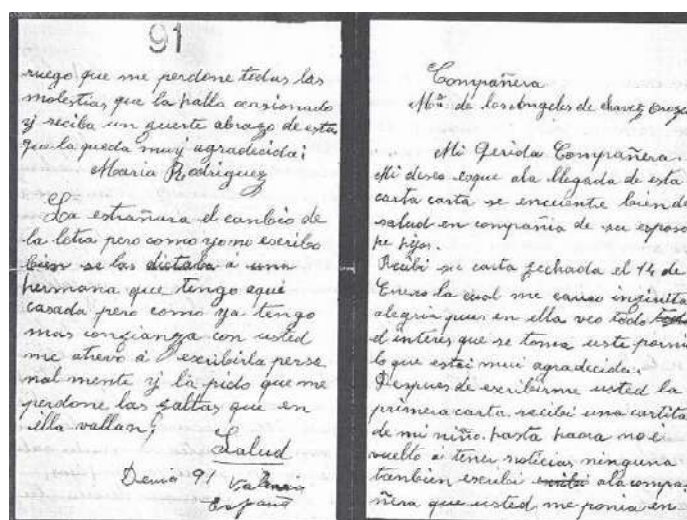 91
ruego que me perdone todas las
molestias que la halla ocasionado
y reciba un fuerte abrazo de esta
que la queda muy agradecida;
María Rodriguez
La estrañara el canbio de
la letra pero como yo no escribo
bien se las dictaba á una
hermana que tengo aqui
casada pero como ya tengo
mas confianza con usted
me atrevo á escribirla perso
nalmente y la pido que me
perdone las faltas que en
ella vallan;
Salud
Denia 91 Valencia
España
Compañera
Mª de los Angeles de Chavez Orozco
Mi Qerida Compañera.
Mi deseo esque ala llegada de esta
carta carta se encuente bien de
salud en compañia de su esposo
he hijos.
Recibi su carta fechada el 14 de
Enero la cual me causo infinita
alegria pues en ella veo todo
el interes que se toma uste por mi
lo que estoi mui agradecida.
Despues de escribirme usted la
primera carta recibi una cartita
de mi niño. hasta haora no é
vuelto á tener noticias ninguna
tanbien escribi ala compa
ñera que usted me ponia en